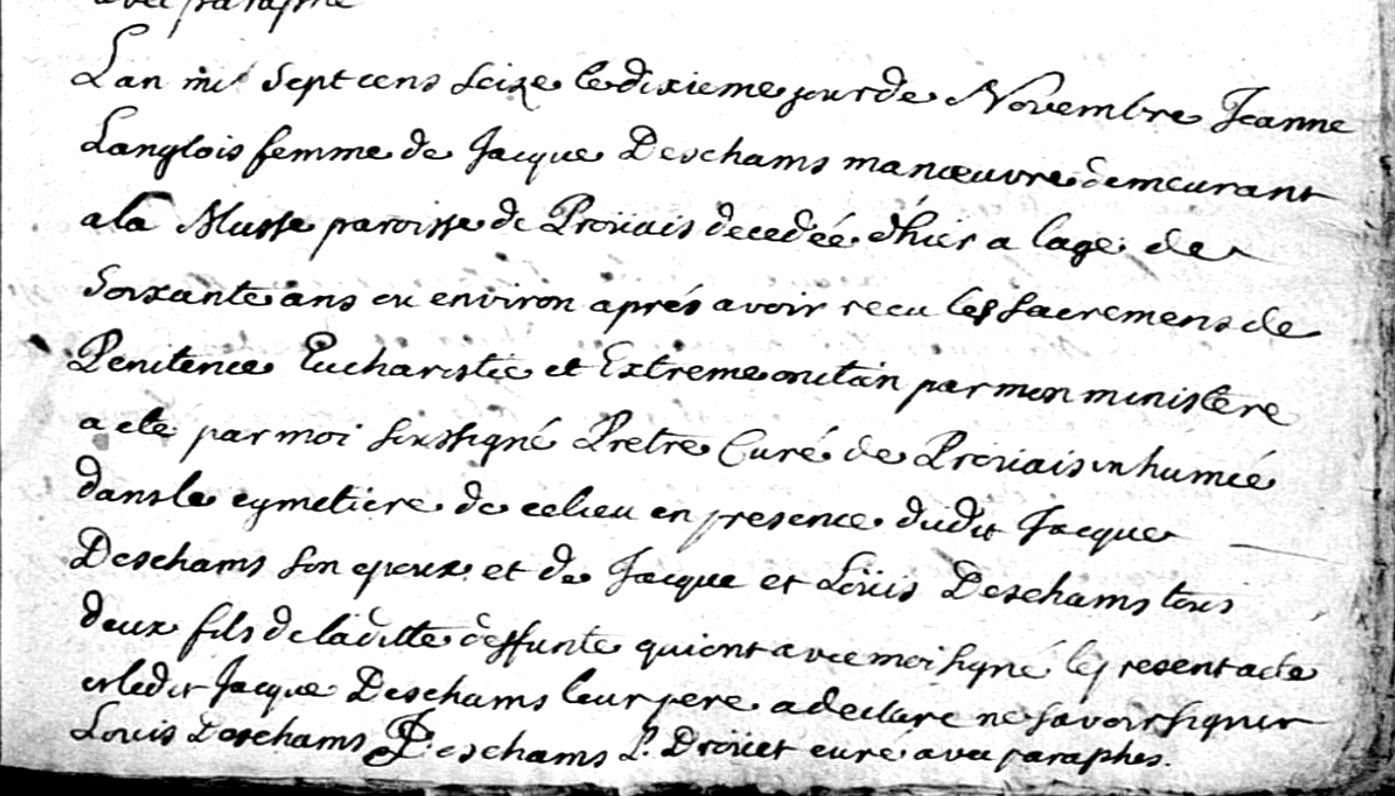 avec paraphe
Lan mil Sept cens Seize le dixieme jour de Novembre Jeanne
Langlois femme de Jacque Deschams manœuvre demeurant
a la Musse paroisse de Proüais decedée d'hier a lage de
Soixante ans ou environ aprés avoir recu les Sacremens de
Penitence Eucharistie et Extreme onction par mon ministere
a ete par moi Soussigné Pretre Curé de Proüais inhumée
dans le cymetiere de ce lieu en presence dudit Jacque
Deschams Son epoux et de Jacque et Loüis Deschams tous
deux fils de la ditte deffunte qui ont avec moi Signé le present acte
et ledit Jacque Deschams leur pere a declare ne Savoir Signer
Louis Deschams J Deschams P. Droüet curé avec paraphes.